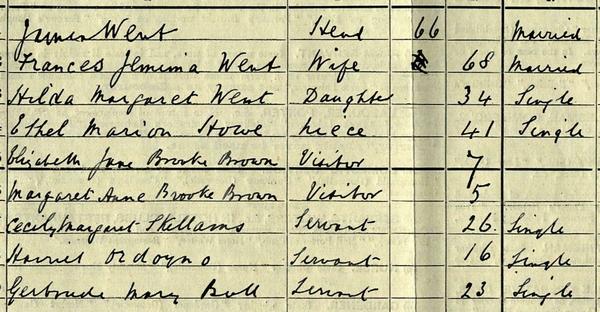 James Went Head 66 Married
Frances Jemima Went Wife 68 Married
Hilda Margaret Went Daughter 34 Single
Ethel Marion Howe Niece 41 Single
Elizabeth Jane Brooke Brown Visitor 7
Margaret Anne Brooke Brown Visitor 5
Cecily Margaret Skellams Servant 26 Single
Harriet Ordoyno Servant 16 Single
Gertrude Mary Bull Servant 23 Single